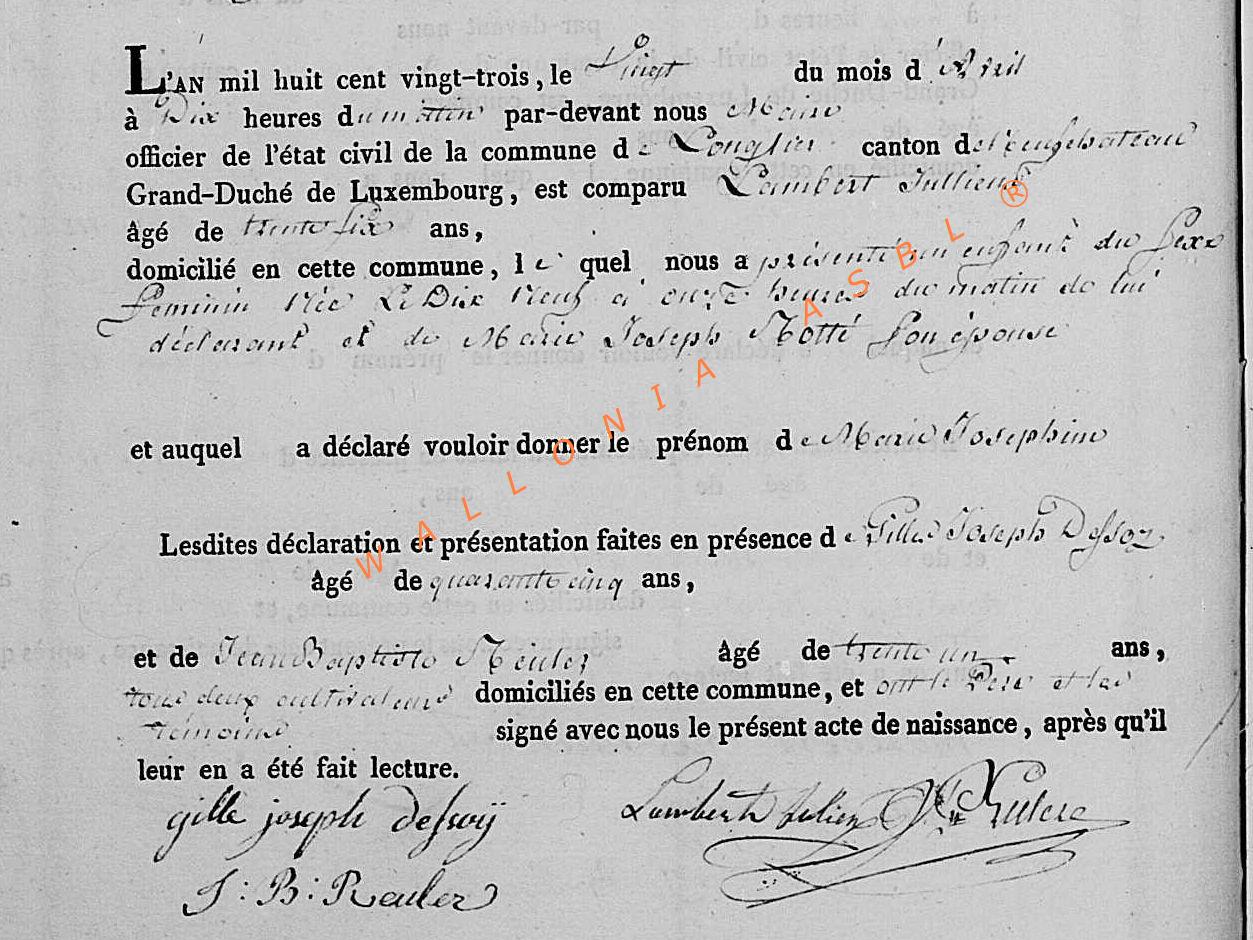 L'AN mil huit cent vingt-trois, le Vingt du mois d'Avril
à Dix heures du matin par-devant nous Maire
officier de l'état civil de la commune de Longlier canton de Neufchateau
Grand-Duché de Luxembourg, est comparu Lambert Jullien
âgé de trente six ans,
domicilié en cette commune, le quel nous a présenté un enfant du sexe
feminin Née Le Dix Neuf à onze heures du matin de lui
déclarant et de Marie Joseph Motté son épouse
et auquel a déclaré vouloir donner le prénom de Marie Josephine
Lesdites déclaration et présentation faites en présence de Gille Joseph Dessoy
âgé de quarante cinq ans,
et de Jean Baptiste Reuler âgé de trente un ans,
tous deux cultivateurs domiciliés en cette commune, et ont le Pere et les
témoins signé avec nous le présent acte de naissance, après qu'il
leur en a été fait lecture.
gille joseph dessoÿ Lambert Julien
J : B : Reuler
WALLONIA ASBL ®